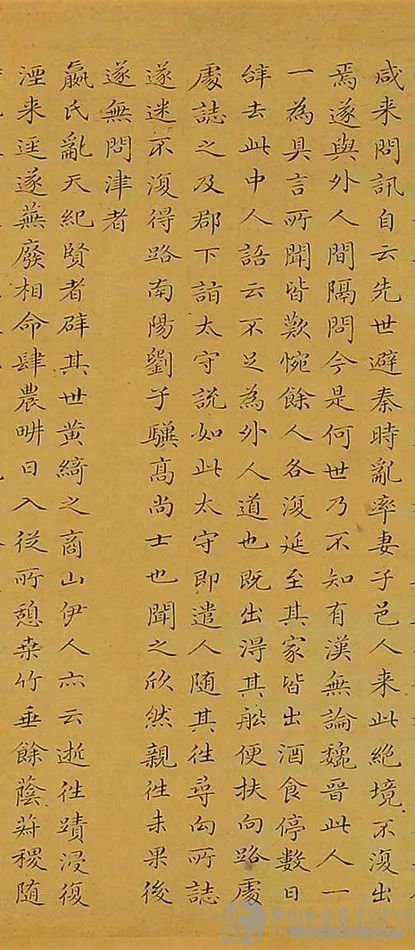 咸来問訊自云先世避秦時亂率妻子邑人来此絶境不復出
焉遂與外人間隔問今是何世乃不知有漢無論魏晉此人一
一為具言所聞皆歎惋餘人各復延至其家皆出酒食停數日
辝去此中人語云不足為外人道也既出得其舩便扶向路處
處誌之及郡下詣太守説如此太守即遣人随其徃尋向所誌
遂迷不復得路南陽劉子驥髙尚士也聞之欣然親徃未果後
遂無問津者
嬴氏亂天紀賢者辟其世黄綺之商山伊人亦云逝徃蹟浸復
湮来迳遂蕪廢相命肆農畊日入從所憩桑竹垂餘蔭菽稷随